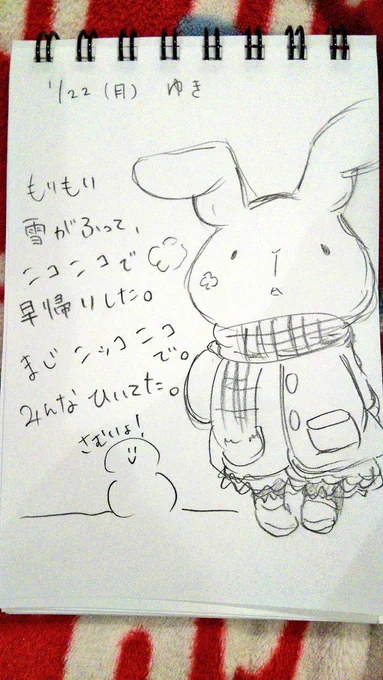 1/22(月) ゆき
もりもり
雪がふって、
ニコニコで
早帰りした。
まじ ニッコニコ
で。
みんな ひいてた。
さむいよ!